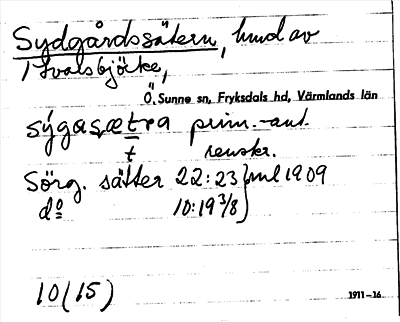 Sydgårdssätern, hmd av
1 Svalsbjörke,
Ö. Sunne sn, Fryksdals hd, Värmlands län
sýgas,ætra prim.-ant.
t renskr.
Sörg. sätter 22:23 } ml 1909
do 10:19 3/8
10(15)
1911-16